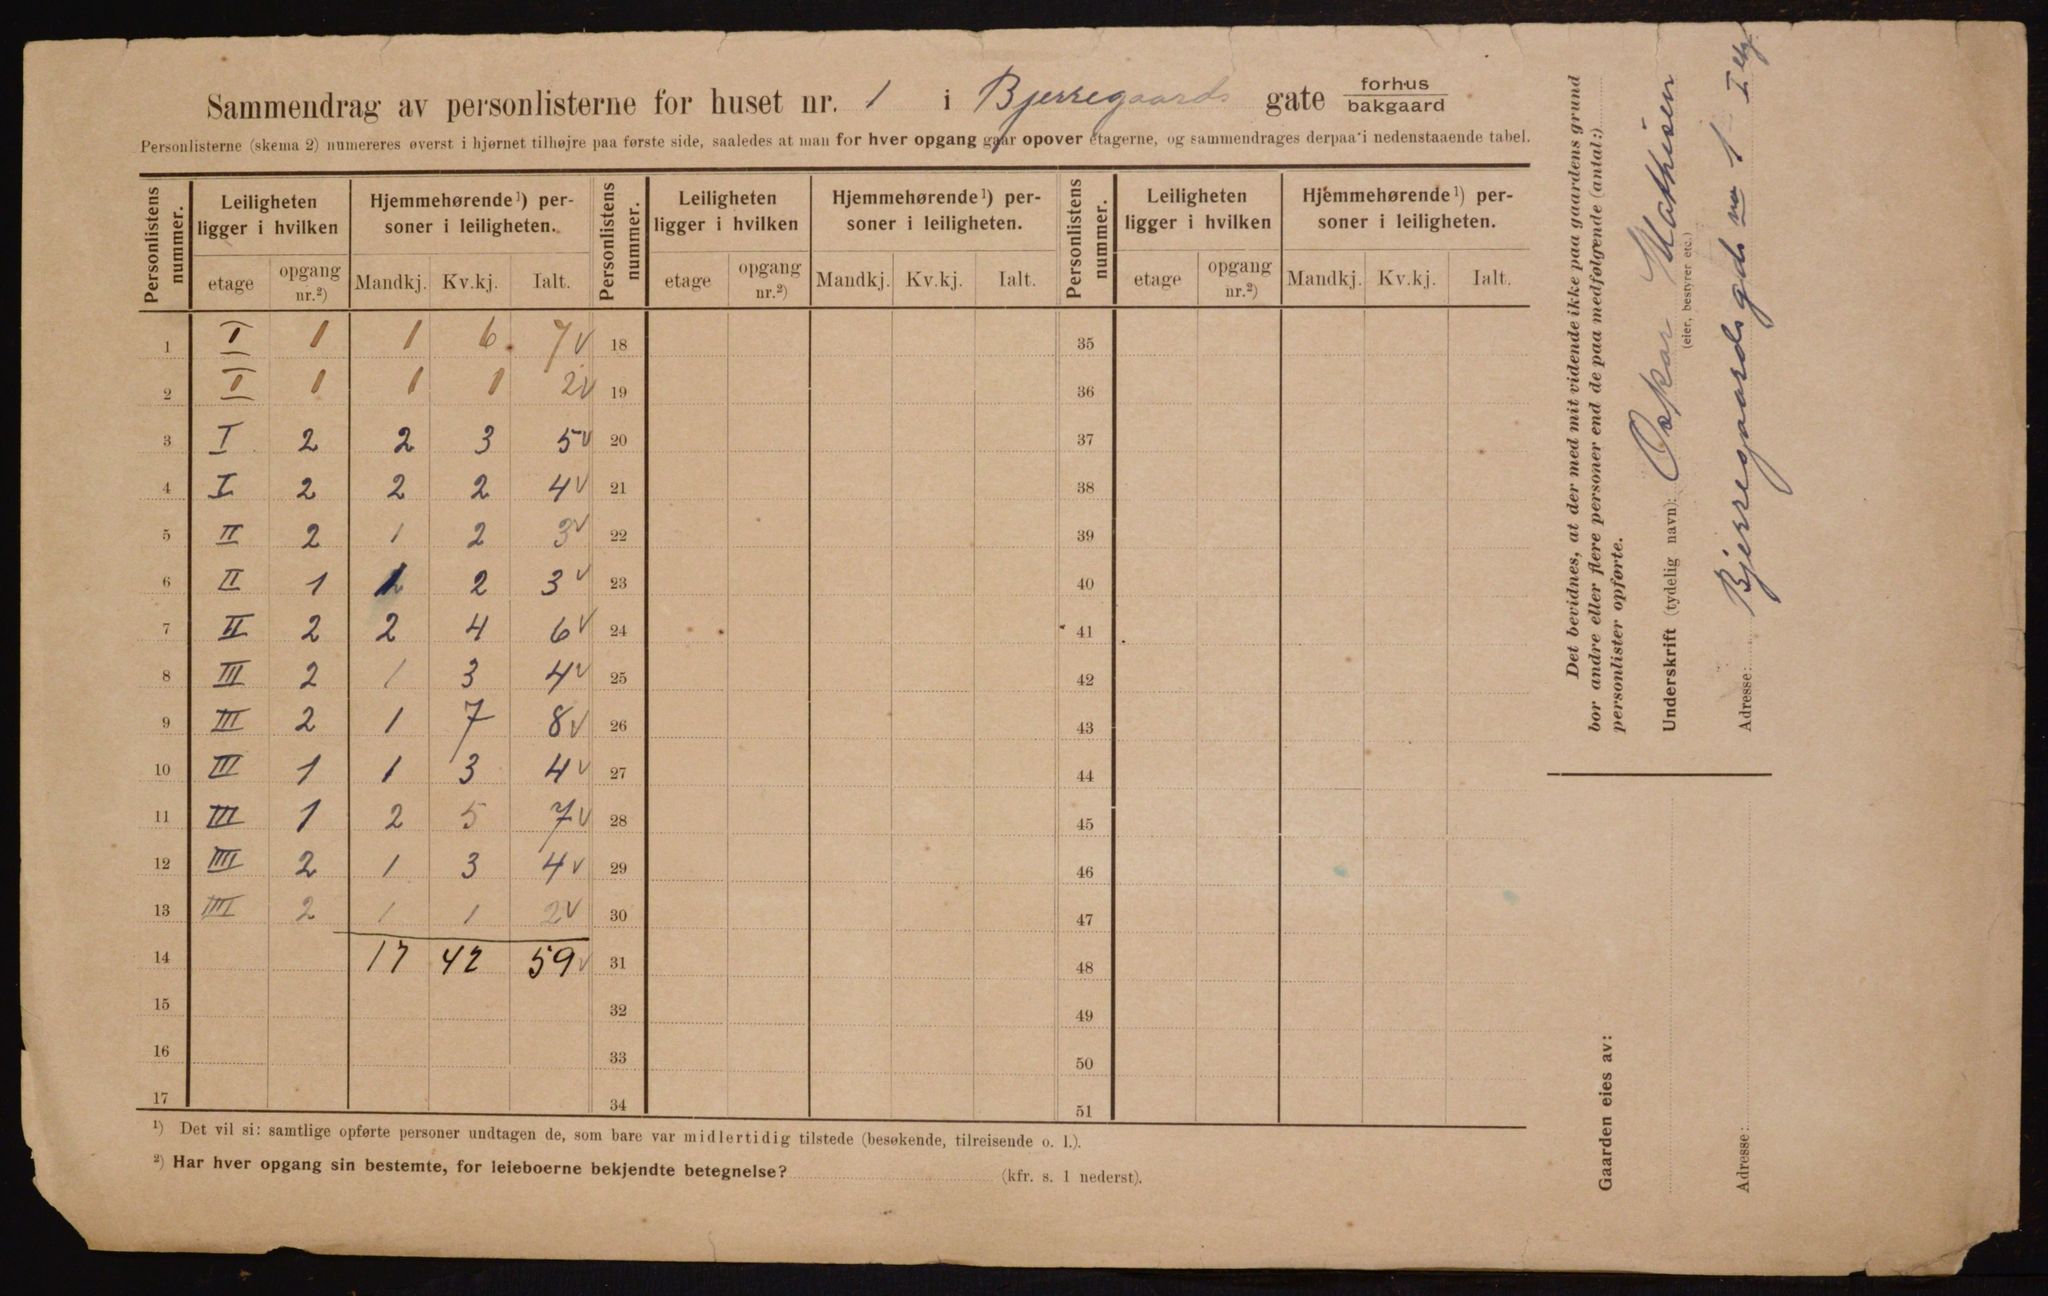 Sammendrag av personlisterne for huset nr. 1 i Bjerregaards gate forhus bakgaard
Personlisterne (skema 2) numereres øverst i hjørnet tilhøjre paa første side, saaledes at man for hver opgang gaar opover etagerne, og sammendrages derpaa i nedenstaaende tabel.
Personlistens nummer. Leiligheten ligger i hvilken Hjemmehørende ¹) personer i leiligheten. Personlistens nummer. Leiligheten ligger i hvilken Hjemmehørende ¹) personer i leiligheten. Personlistens nummer. Leiligheten ligger i hvilken Hjemmehørende ¹) personer i leiligheten.
etage opgang nr.²) Mandkj. Kv.kj. Ialt. etage opgang nr.²) Mandkj. Kv.kj. Ialt. etage opgang nr.²) Mandkj. Kv.kj. Ialt.
1 I 1 1 6 7 v 18 35
2 I 1 1 1 2 v 19 36
3 I 2 2 3 5 v 20 37
4 I 2 2 2 4 v 21 38
5 II 2 1 2 3 v 22 39
6 II 1 1 2 3 v 23 40
7 II 2 2 4 6 v 24 41
8 III 2 1 3 4 v 25 42
9 III 2 1 7 8 v 26 43
10 III 1 1 3 4 v 27 44
11 III 1 2 5 7 v 28 45
12 IIII 2 1 3 4 v 29 46
13 IIII 2 1 1 2 v 30 47
14 17 42 59 v 31 48
15 32 49
16 33 50
17 34 51
¹) Det vil si: samtlige opførte personer undtagen de, som bare var midlertidig tilstede (besøkende, tilreisende o. l.).
²) Har hver opgang sin bestemte, for leieboerne bekjendte betegnelse? (kfr. s. 1 nederst).
Det bevidnes, at der med mit vidende ikke paa gaardens grund
bor andre eller flere personer end de paa medfølgende (antal:)
personlister opførte.
Underskrift (tydelig navn): Oskar Mathisen
(eier, bestyrer etc.)
Adresse: Bjerregaardsgd no 1 I
Gaarden eies av:
Adresse: